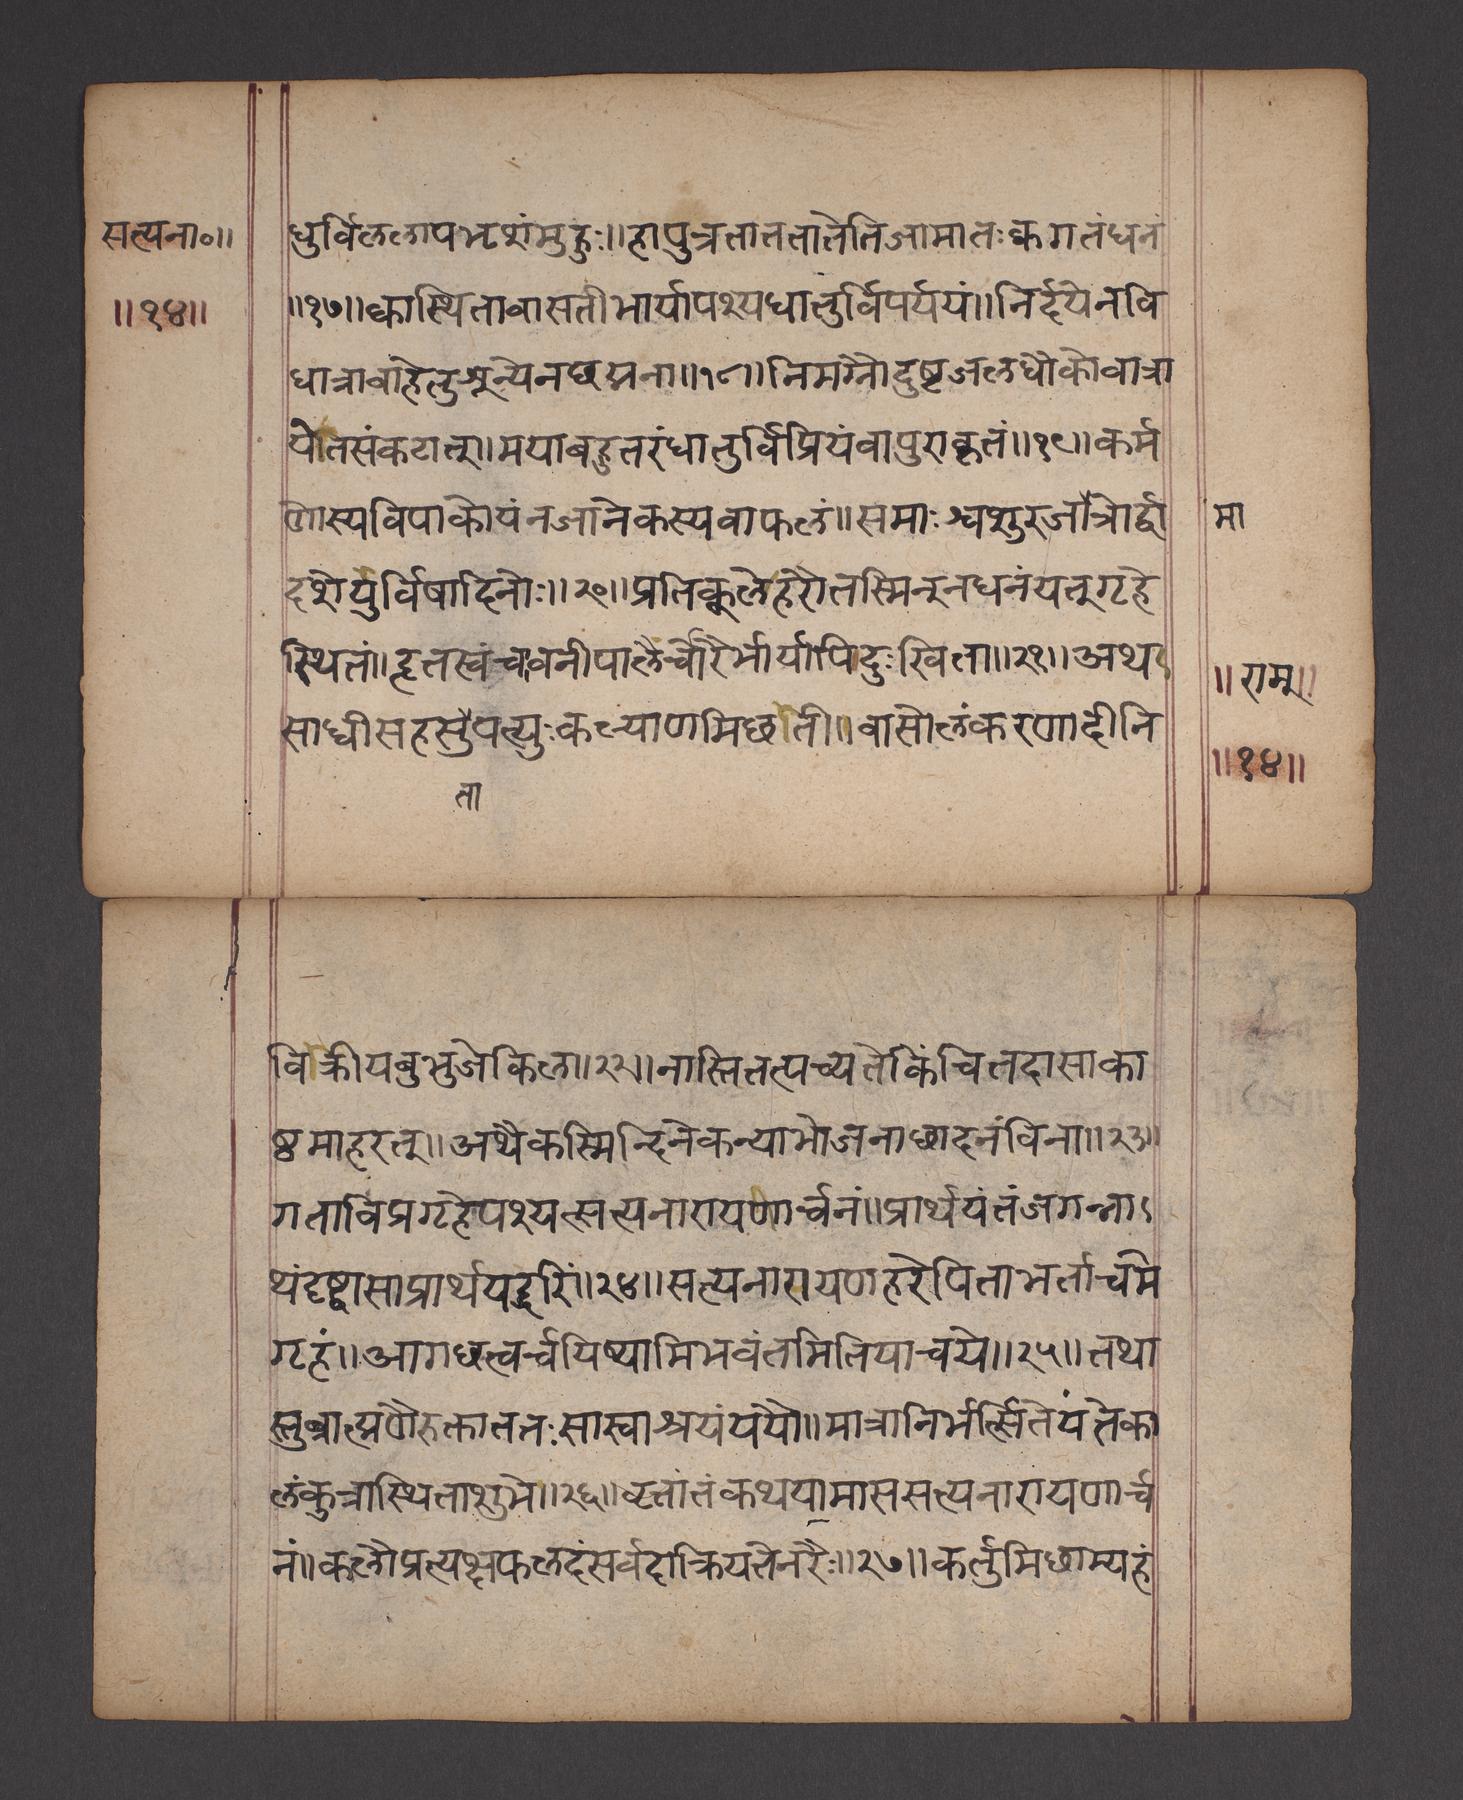 सत्यना०॥
॥१४॥
धुर्विललापभृशंमुहुः॥हापुत्रताततातेतिजामातःक्वगतंधनं
॥१७॥क्वास्थितावासतीभार्यापश्यधातुर्विपर्ययं॥निर्दयेनवि
धात्रावांहेतुशून्येनछद्मना॥१८॥निमग्नौदुष्टजलधौकोवात्रा
येतसंकटात्॥मयाबहुतरंधातुर्विप्रियंवापुराकृतं॥१९॥कर्म
णोस्यविपाकोयंनजानेकस्यवाफलं॥समाःश्वशुरजौत्रोर्द्वा
मा
दशेयुर्विषादिनोः॥२०॥प्रतिकूलेहरौतस्मिन्नधनंयत्गृहे
स्थितं॥हृतस्वंचावनीपालैर्चोरैर्भार्यापिदुःखिता॥२१॥अथ
साध्वीसहसुपत्युःकल्याणमिछती॥वासोलंकरणादीनि
ता
॥राम॥
॥१४॥
विक्रीयबुभुजेकिल॥२२॥नास्तितत्पच्यतेकिंचित्तदासाका
ष्ठमाहरत्॥अथैकस्मिन्दिनेकन्याभोजनाछादनंविना॥२३॥
गताविप्रगृहेपश्यत्सत्यनारायणार्चनं॥प्रार्थयंतंजगन्ना
थंदृष्ट्वासाप्रार्थयद्धरिं॥२४॥सत्यनारायणहरेपिताभर्ताचमे
गृहं॥आगछत्वर्चयिष्यामिभवंतमितियाचये॥२५॥तथा
स्तुब्राह्मणैरुक्ताततःसास्वाश्रयंययौ॥मात्रानिर्भर्त्सितेयंतेका
लंकुत्रास्थिताशुभे॥२६॥वृत्तांतंकथयामाससत्यनारायणार्च
नं॥कलौप्रत्यक्षफलदंसर्वदाक्रियतेनरैः॥२७॥कर्तुमिछाम्यहं